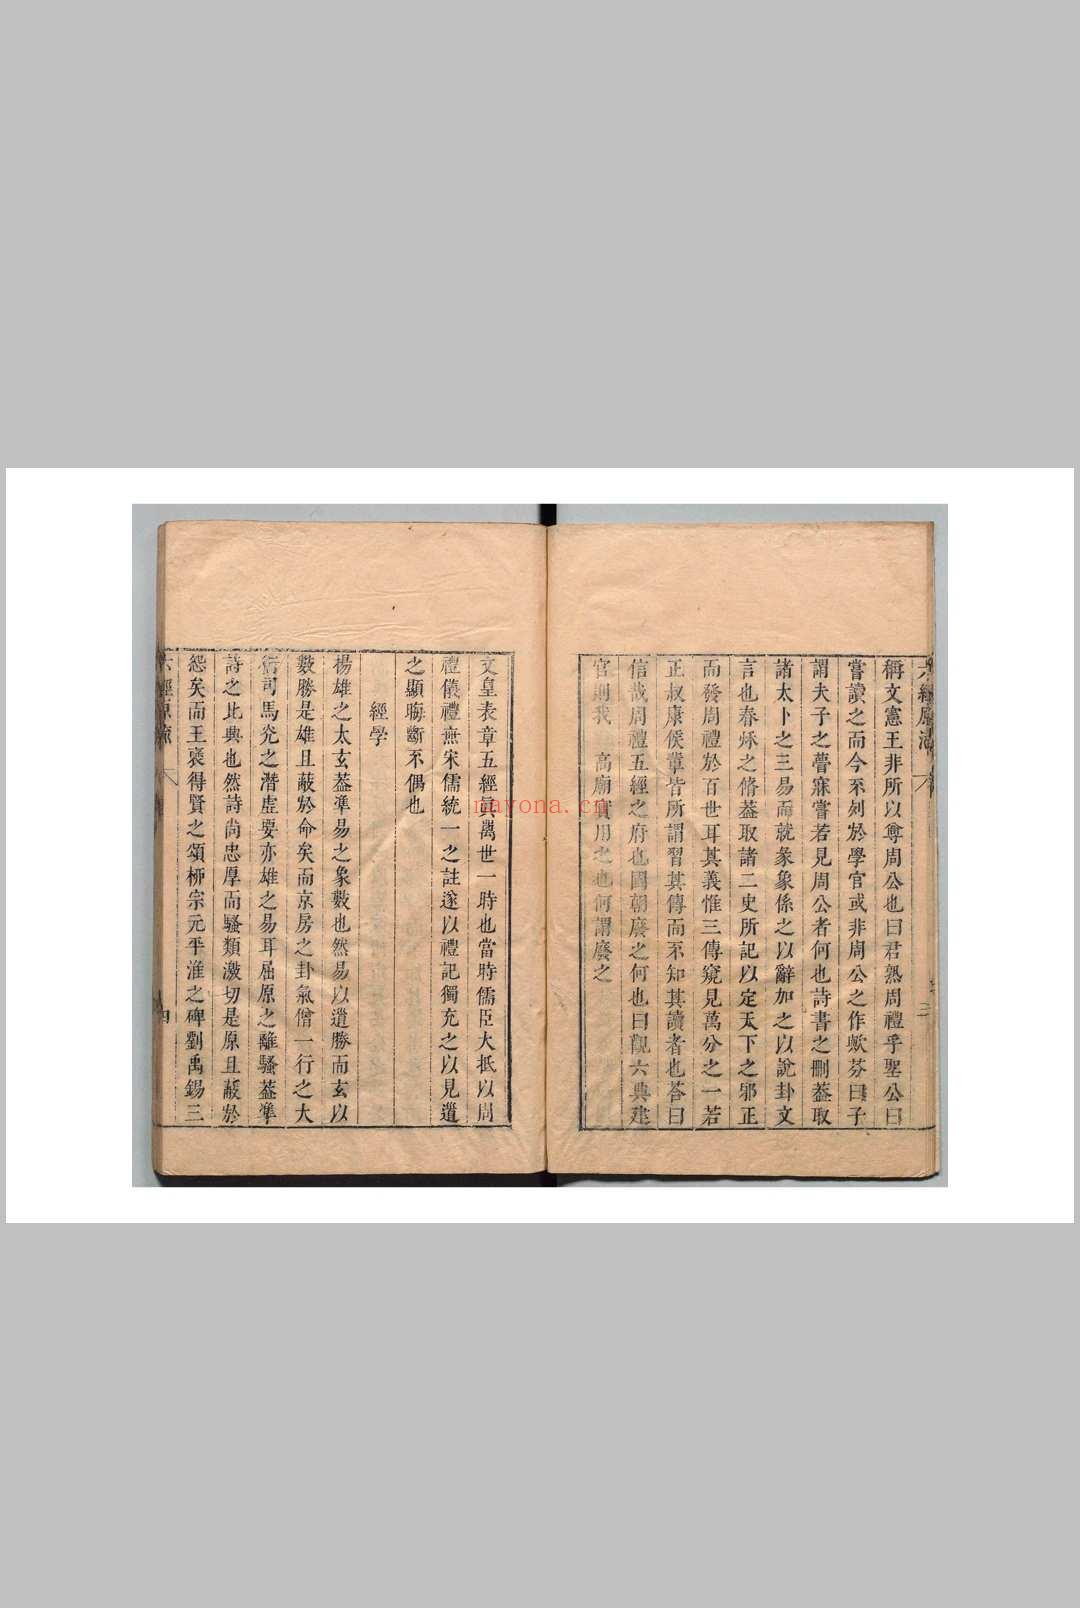 六經原流
稱文憲王非所以尊周公也曰君熟周禮乎聖公曰
嘗讀之而今不列於學官或非周公之作歟芬曰子
謂夫子之嘗寐嘗若見周公者何也詩書之刪葢取
諸太卜之三易而就彖象係之以辭加之以說卦文
言也春秌之脩葢取諸二史所記以定天下之邪正
而發周禮於百世耳其義惟三傳窺見萬分之一若
正叔康侯輩皆所謂習其傳而不知其讀者也荅曰
信哉周禮五經之府也國朝廢之何也曰觀六典建
官則我 高廟實用之也何謂廢之
文皇表章五經眞萬世一時也當時儒臣大抵以周
禮儀禮無宋儒統一之註遂以禮記獨充之以見遺
之顯晦斷不偶也
經學
楊雄之太玄葢準易之象數也然易以道勝而玄以
數勝是雄且蔽於命矣而京房之卦氣僧一行之大
衍司馬光之潛虛要亦雄之易耳屈原之離騷葢準
詩之比興也然詩尚忠厚而騷類激切是原且蔽於
怨矣而王襃得賢之頌栁宗元平淮之碑劉禹錫三
六經原流
四
nayona.cn